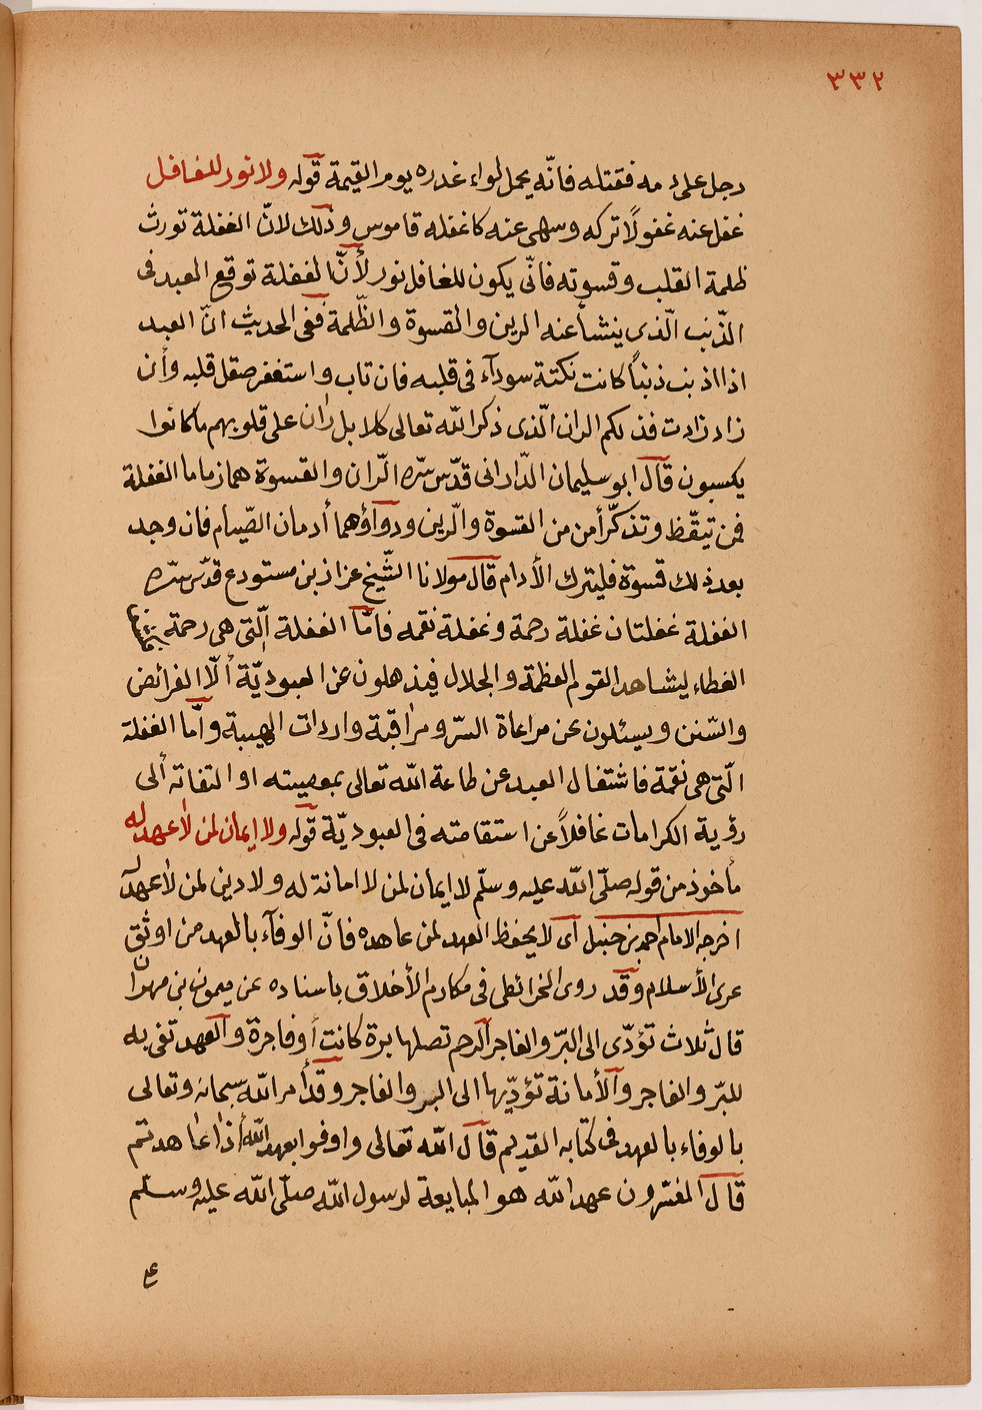 ٣٣٢
رجل على دمه فقتله فانّه يحمل لواء غدره يوم القيمة قوله ولا نور للغافل
غفل عنه غفولاً تركه وسهى عنه كاغفله قاموس وذلك لانّ الغفلة تورث
ظلمة القلب وقسوته فانّى يكون للغافل نور لأنّ الغفلة توقع العبد فى
الذّنب الّذى ينشأ عنه الرين والقسوة والظّلمة ففى الحديث انّ العبد
اذا اذنب ذنبًا كانت نكتة سودآء فى قلبه فان تاب واستغفر صقل قلبه وأن
زاد زادت فذلكم الران الّذى ذكر اللّه تعالى كلا بل ران على قلوبهم ما كانوا
يكسبون قال ابو سليمان الدّارانى قدّس سرّه الرّان والقسوة هما زماما الغفلة
فمن تيقّظ وتذكّر أمن من القسوة والرّين ودواؤهما أدمان الصّيام فان وجد
بعد ذلك قسوة فليترك الأدام قال مولانا الشّيخ عزاز بن مستودع قدّس سرّه
الغفلة غفلتان غفلة رحمة وغفلة نقمه فامّا الغفلة الّتى هى رحمة
الغطاء ليشاهد القوم العظمة والجلال فيذهلون عن العبوديّة ألّا الفرائض
والسّنن ويسئلون عن مراعاة السرّ ومراقبة واردات الهيبة وأمّا الغفلة
الّتى هى نقمة فاشتغال العبد عن طاعة اللّه تعالى بمعصيته او التفاته ألى
رؤية الكرامات غافلاً عن استقامته فى العبوديّة قوله ولا ايمان لمن لا عهد له
مأخوذ من قوله صلّى اللّه عليه وسلّم لا ايمان لمن لا امانة له ولا دين لمن لا عهد له
اخرجه الامام احمد بن حنبل أى لا يحفظ العهد لمن عاهده فانّ الوفآء بالعهد من اوثق
عرى الأسلام وقد روى الخرائطى فى مكارم الأخلاق باسناده عن ميمون بن مهران
قال ثلاث تؤدّى الى البرّ والفاجر الرحم تصلها برة كانت أو فاجرة والعهد تفى به
للبرّ والفاجر والأمانة تؤدّيها الى البر والفاجر وقد أمر اللّه سبحانه وتعالى
بالوفاء بالعهد فى كتابه القديم قال اللّه تعالى واوفوا بعهد اللّه أذا عاهدتم
قال المفسّرون عهد اللّه هو المبايعة لرسول اللّه صلّى اللّه عليه وسلّم